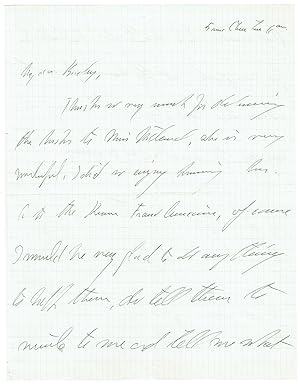 My dear
Thanks so very much for delivering
the books to Miss, she is very
wonderful, I did so enjoy knowing her.
As to the, of course
I would be very glad to do anything
to help them, do tell them to
write to me and tell me what